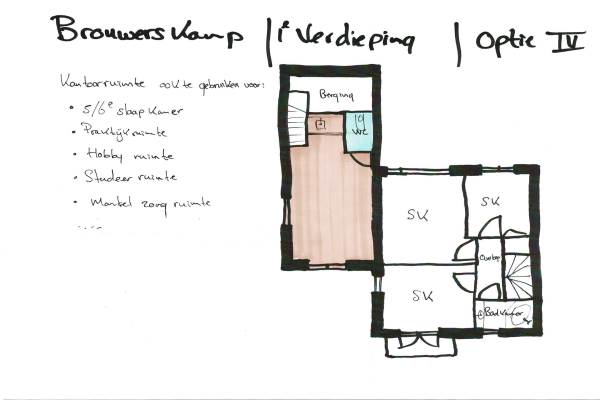 BrouwersKamp | 1e Verdieping | Optie IV
Kantoorruimte ook te gebruiken voor:
• 5/6e slaapkamer
• Praktijkruimte
• Hobby ruimte
• Studeer ruimte
• Mantel zorg ruimte
Berging
WC
SK
SK
Overloop
SK
Badkamer